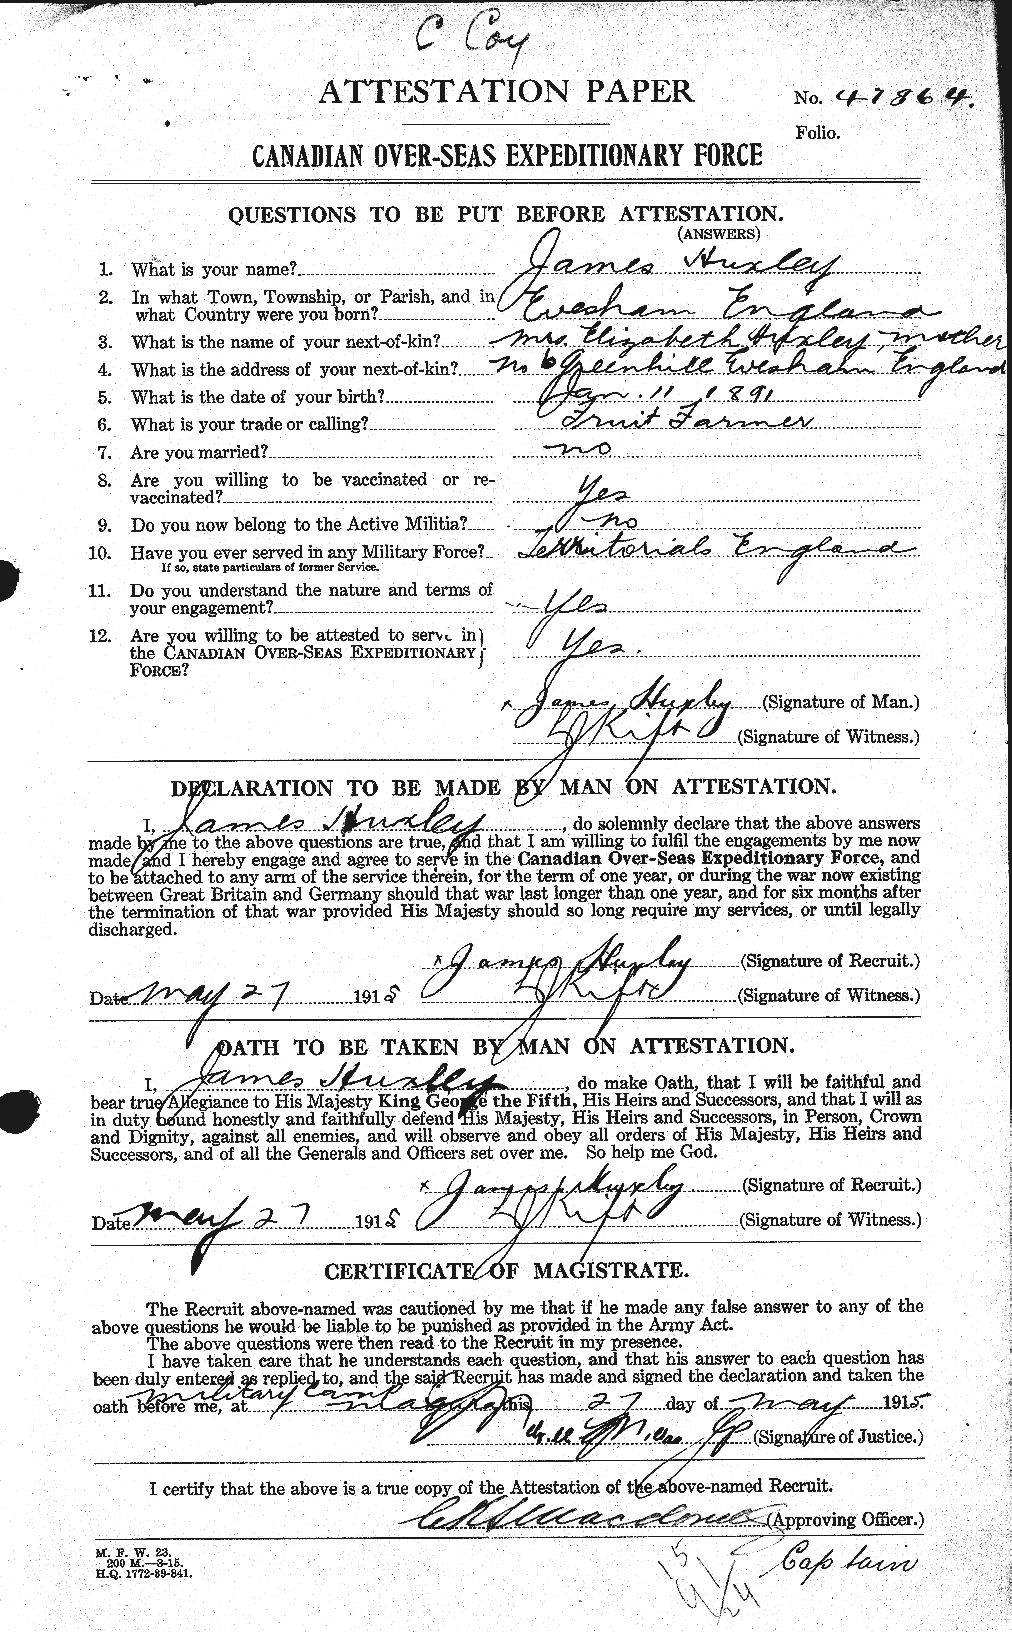 C Coy
ATTESTATION PAPER
No. 47864.
Folio.
CANADIAN OVER-SEAS EXPEDITIONARY FORCE
QUESTIONS TO BE PUT BEFORE ATTESTATION.
(ANSWERS)
1. What is your name? James Huxley
2. In what Town, Township, or Parish, and in
what Country were you born? Evesham England
3. What is the name of your next-of-kin? Mrs. Elizabeth Huxley, mother
4. What is the address of your next-of-kin? No 6 Greenhill Evesham England
5. What is the date of your birth? Jan. 11 1891
6. What is your trade or calling? Fruit Farmer
7. Are you married? no
8. Are you willing to be vaccinated or re-
vaccinated? Yes
9. Do you now belong to the Active Militia? no
10. Have you ever served in any Military Force? Territorials England
If so, state particulars of former Service.
11. Do you understand the nature and terms of
your engagement? Yes
12. Are you willing to be attested to serve in
the CANADIAN OVER-SEAS EXPEDITIONARY Yes.
FORCE?
x James Huxley (Signature of Man.)
Kift (Signature of Witness.)
DECLARATION TO BE MADE BY MAN ON ATTESTATION.
I, James Huxley, do solemnly declare that the above answers
made by me to the above questions are true, and that I am willing to fulfil the engagements by me now
made, and I hereby engage and agree to serve in the Canadian Over-Seas Expeditionary Force, and
to be attached to any arm of the service therein, for the term of one year, or during the war now existing
between Great Britain and Germany should that war last longer than one year, and for six months after
the termination of that war provided His Majesty should so long require my services, or until legally
discharged.
x James Huxley (Signature of Recruit.)
Date May 27 1915 Kift (Signature of Witness.)
OATH TO BE TAKEN BY MAN ON ATTESTATION.
I, James Huxley, do make Oath, that I will be faithful and
bear true Allegiance to His Majesty King George the Fifth, His Heirs and Successors, and that I will as
in duty bound honestly and faithfully defend His Majesty, His Heirs and Successors, in Person, Crown
and Dignity, against all enemies, and will observe and obey all orders of His Majesty, His Heirs and
Successors, and of all the Generals and Officers set over me. So help me God.
x James Huxley (Signature of Recruit.)
Date May 27 1915 Kift (Signature of Witness.)
CERTIFICATE OF MAGISTRATE.
The Recruit above-named was cautioned by me that if he made any false answer to any of the
above questions he would be liable to be punished as provided in the Army Act.
The above questions were then read to the Recruit in my presence.
I have taken care that he understands each question, and that his answer to each question has
been duly entered as replied to, and the said Recruit has made and signed the declaration and taken the
oath before me, at Military Camp Niagara this 27 day of May 1915.
JP (Signature of Justice.)
I certify that the above is a true copy of the Attestation of the above-named Recruit.
Macdonald (Approving Officer.)
M. F. W. 23.
200 M.—3-15.
H.Q. 1772-39-841.
Captain